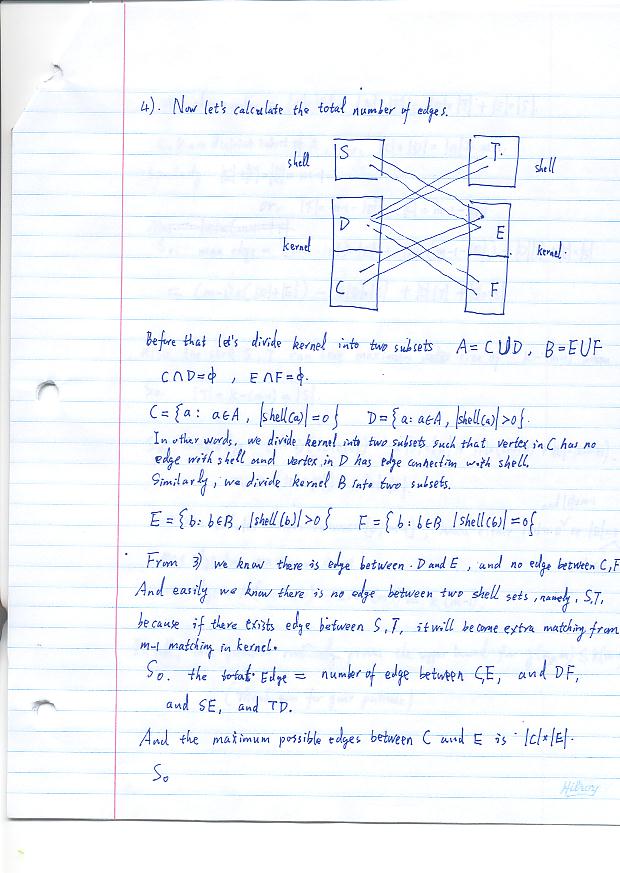 4). Now let's calculate the total number of edges.
S T.
shell shell
D E
kernel kernel.
C F
Before that let's divide kernel into two subsets A=C∪D, B=E∪F
C∩D=ϕ , E∩F=ϕ.
C={a: a∈A, |shell(a)|=0} D={a: a∈A, |shell(a)|>0}.
In other words, we divide kernel into two subsets such that vertex in C has no
edge with shell and vertex in D has edge connection with shell.
Similarly, we divide kernel B into two subsets.
E={b: b∈B, |shell(b)|>0} F={b: b∈B |shell(b)|=0}
From 3) we know there is edge between D and E, and no edge between C,F
And easily we know there is no edge between two shell sets, namely, S,T,
because if there exists edge between S,T, it will become extra matching from
m-1 matching in kernel.
So. the total Edge = number of edge between C,E, and DF,
and SE, and TD.
And the maximum possible edges between C and E is |C|*|E|.
So